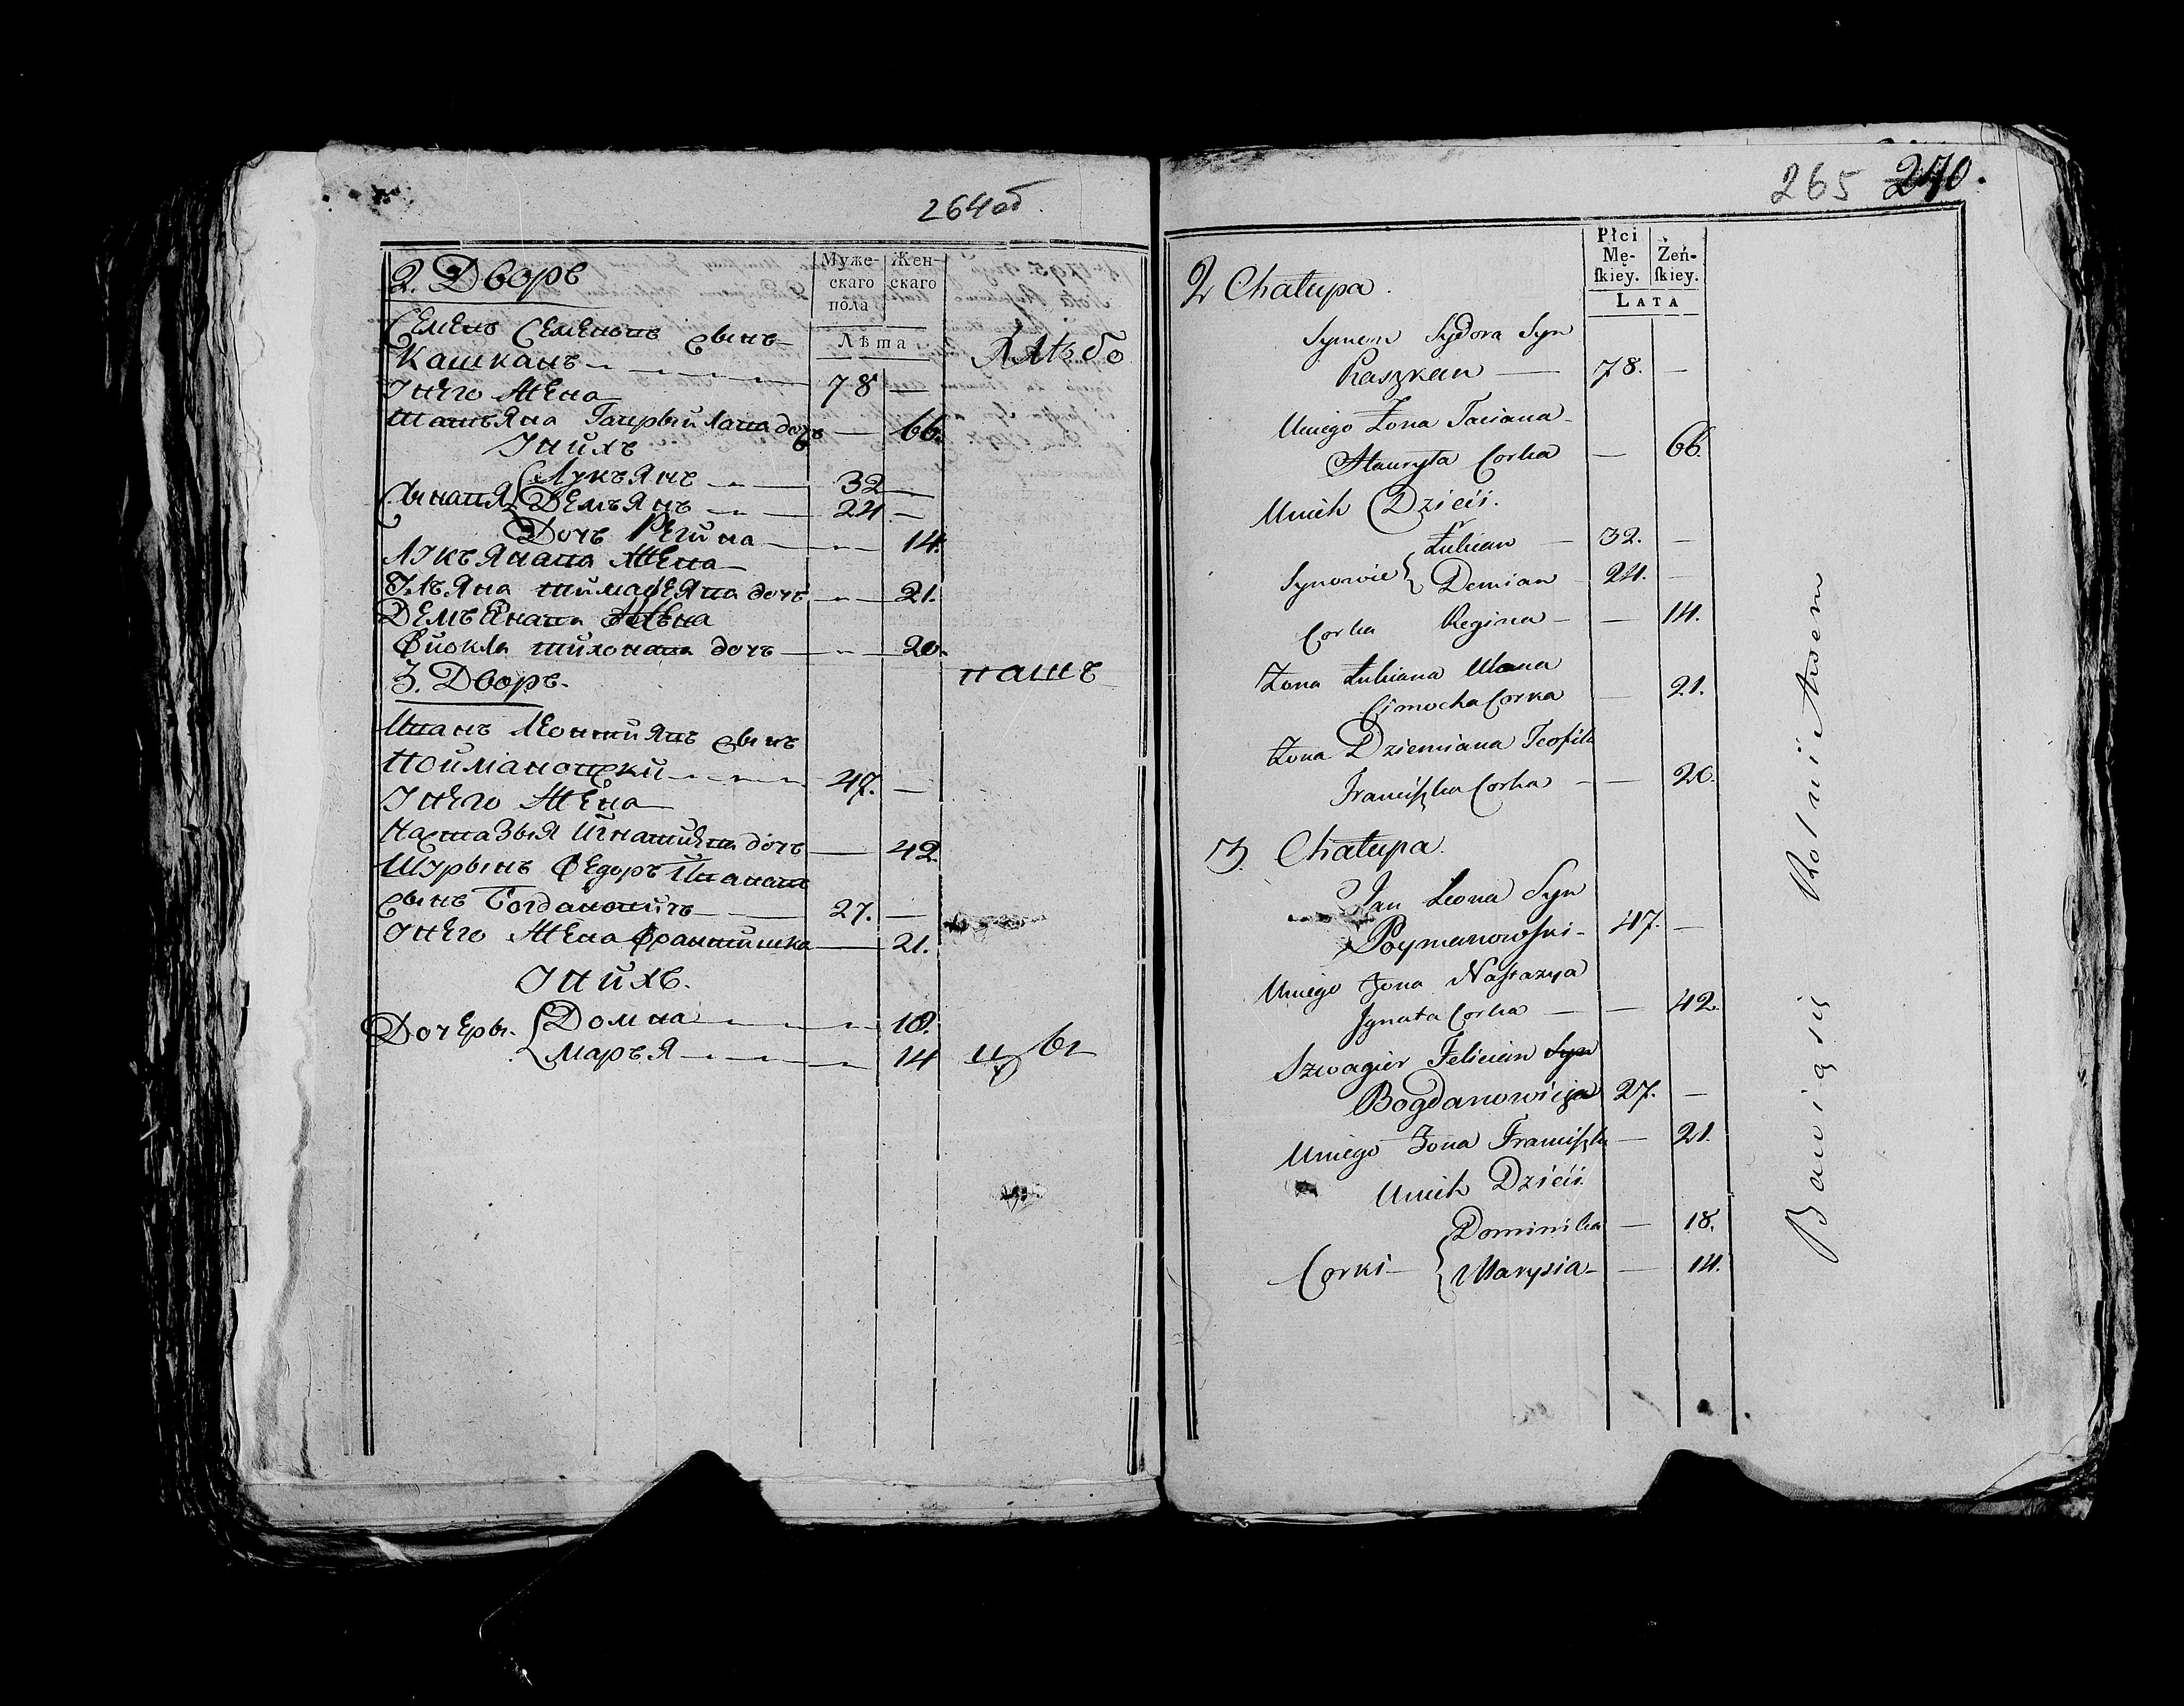 264 об.
2. Дворъ
Муже-
скаго
пола
Жен-
скаго
Лѣта
Семенъ Семеновъ сынъ
Кашканъ
78
Унего Жена
татьяна дочъ
66.
Унихъ
Сыновя
Лукъянъ
32
Демъянъ
24
Дочъ Регина
14.
Лукъянова Жена
Улъяна тимофеява дочъ
21.
Демъянова Жена
Фиокла тихонова дочъ
20.
3. Дворъ.
Иванъ Леонтиявъ сынъ
Поймановски
47.
Унего Жена
Настазыя Игнатиява дочъ
42.
Шурынъ Федоръ Иванавъ
сынъ Богдановичъ
27.
Унего Жена Францишка
21.
Унихъ.
Дочеры.
Домна
18.
Маръя
14
хлѣбо
паш
цы
265 270.
Płci
Mę-
ſkiey.
Żeń-
ſkiey.
LATA
2 Chałupa.
Symon Sydora Syn
Kaszkan
78.
Uniego Żona Taciana
Hauryła Corka
66.
Unich Dzieći.
Synowie
Łukian
32.
Demian
24.
Corka Regina
14.
Żona Łukiana Ulana
Cimocha Corka
21.
Żona Dziemiana Teofila
Franciſzka Corka
20.
3. Chałupa.
Jan Leona Syn
Poymanowſki
47.
Uniego Żona Naſtazya
Ignata Corka
42.
Szwagier Felician Syn
Bogdanowicza
27.
Uniego Żona Franciſzka
21.
Unich Dzieći.
Corki
Dominika
18.
Marysia
14.
Bawią się Rolnictwem